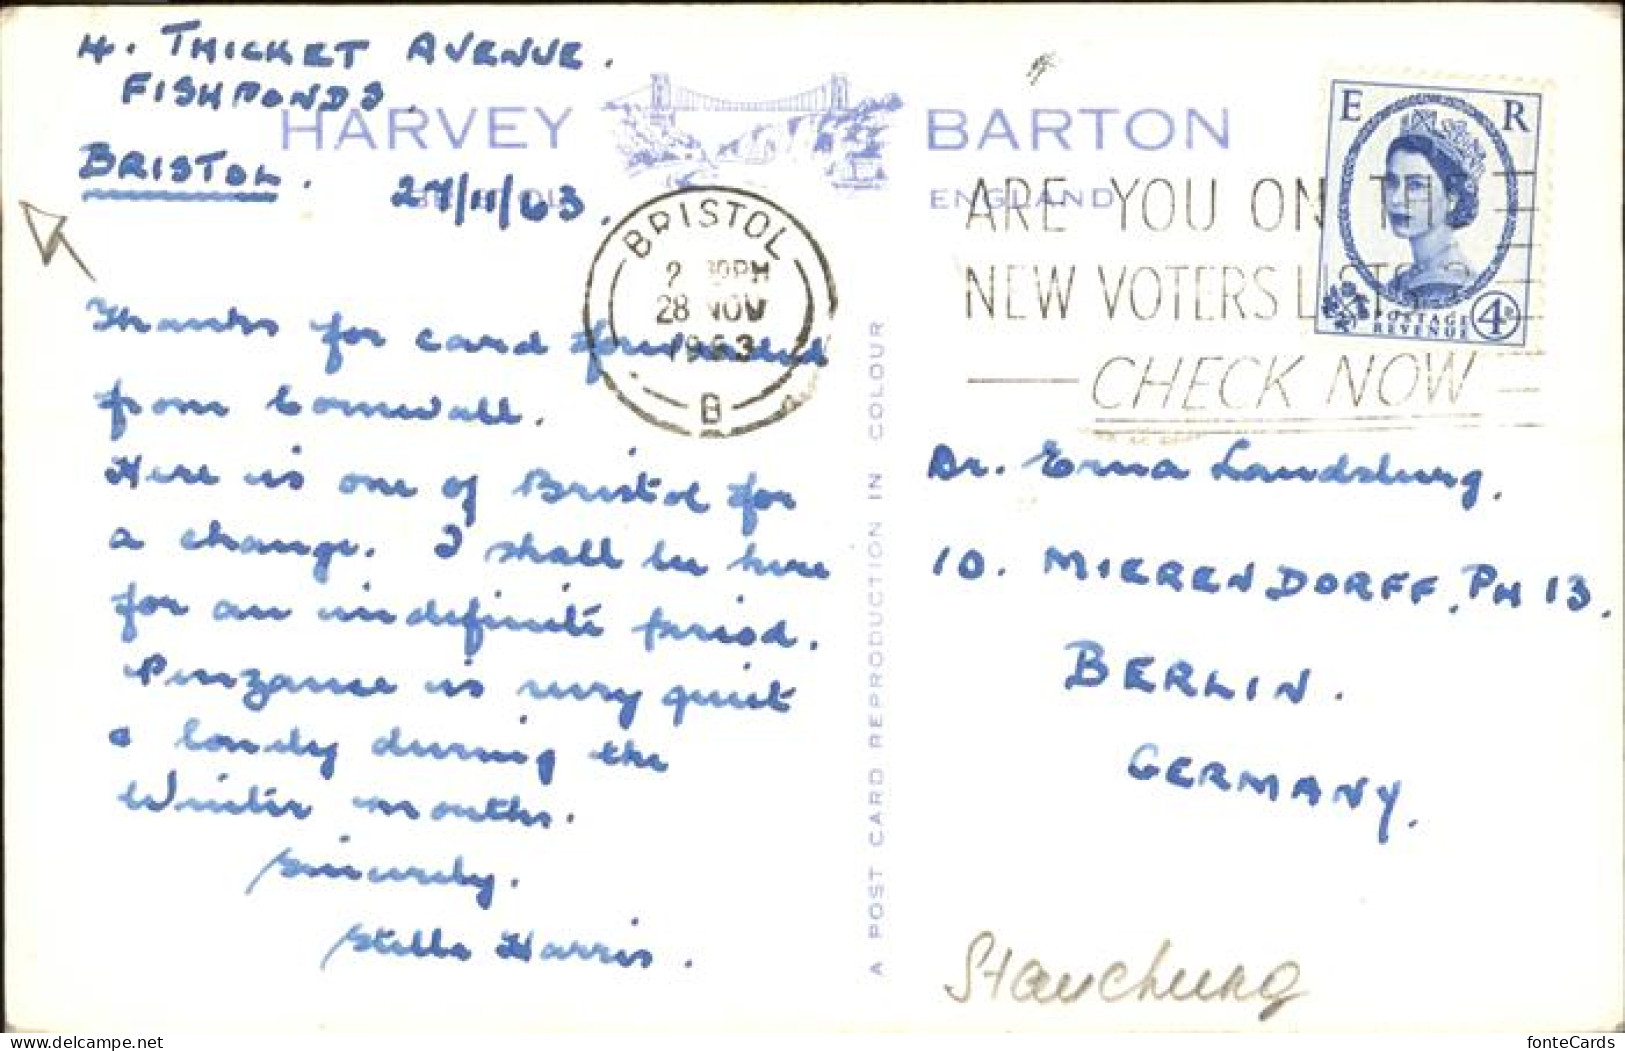 4. THICKET AVENUE.
FISHPONDS.
BRISTOL. 27/11/63.
HARVEY BARTON
ENGLAND
BRISTOL
28 NOV
1963
B
ARE YOU ON THE
NEW VOTERS LISTS?
CHECK NOW
E R
POSTAGE
REVENUE
4D
Thanks for card forwarded
from Cornwall.
Here is one of Bristol for
a change. I shall be here
for an indefinite period.
Penzance is very quiet
& lonely during the
Winter months.
Sincerely.
Stella Harris.
A POST CARD REPRODUCTION IN COLOUR
Dr. Erna Landsburg.
10. MIERENDORFF. PH 13.
BERLIN.
GERMANY.
delcampe.net
fonteCards